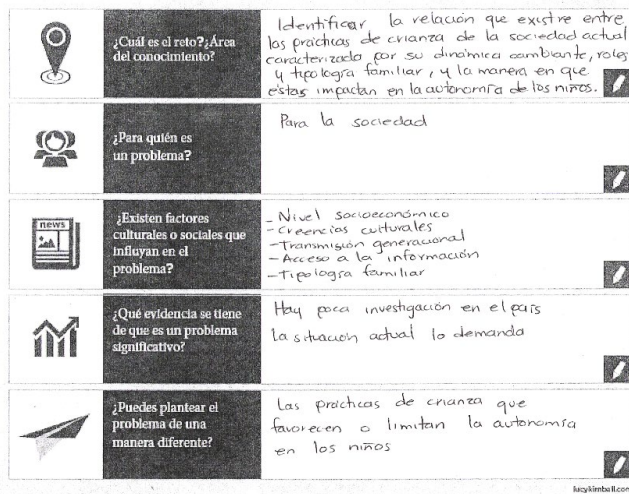 ¿Cuál es el reto?¿Área
del conocimiento?
Identificar la relación que existre entre
las prácticas de crianza de la sociedad actual
caracterizada por su dinámica cambiante, roles
y tipología familiar, y la manera en que
estas impactan en la autonomía de los niños.
¿Para quién es
un problema?
Para la sociedad
news
¿Existen factores
culturales o sociales que
influyan en el
problema?
- Nivel socioeconómico
- Creencias culturales
- Transmisión generacional
- Acceso a la información
- Tipología familiar
¿Qué evidencia se tiene
de que es un problema
significativo?
Hay poca investigación en el país
La situación actual lo demanda
¿Puedes plantear el
problema de una
manera diferente?
Las prácticas de crianza que
favorecen o limitan la autonomía
en los niños
lucykimball.com